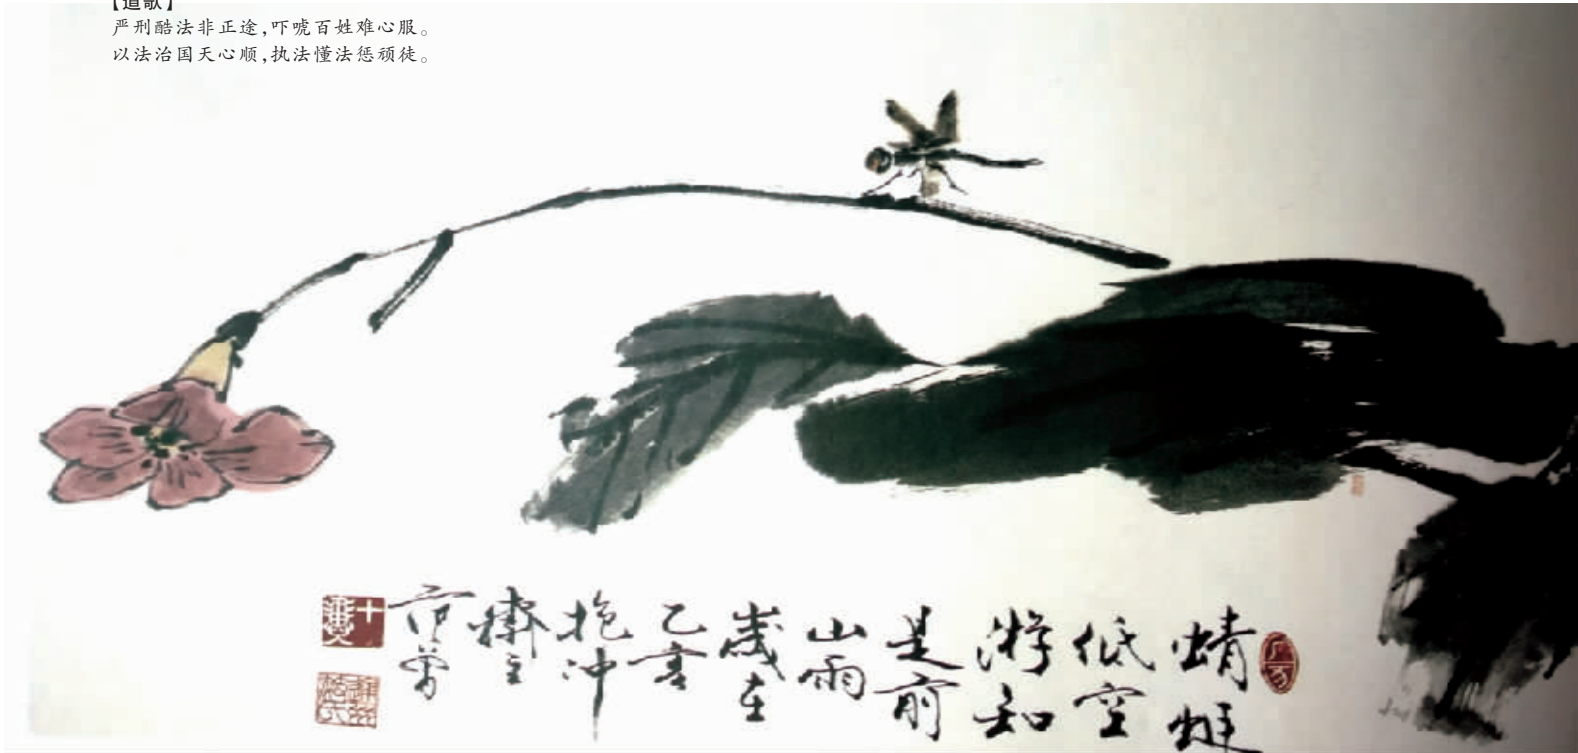 【道歌】
严刑酷法非正途,吓唬百姓难心服。
以法治国天心顺,执法懂法惩顽徒。
蜻蜓
低空
游知
是前
山雨
歲在
乙亥
抱冲
齋主
范曾
十翼